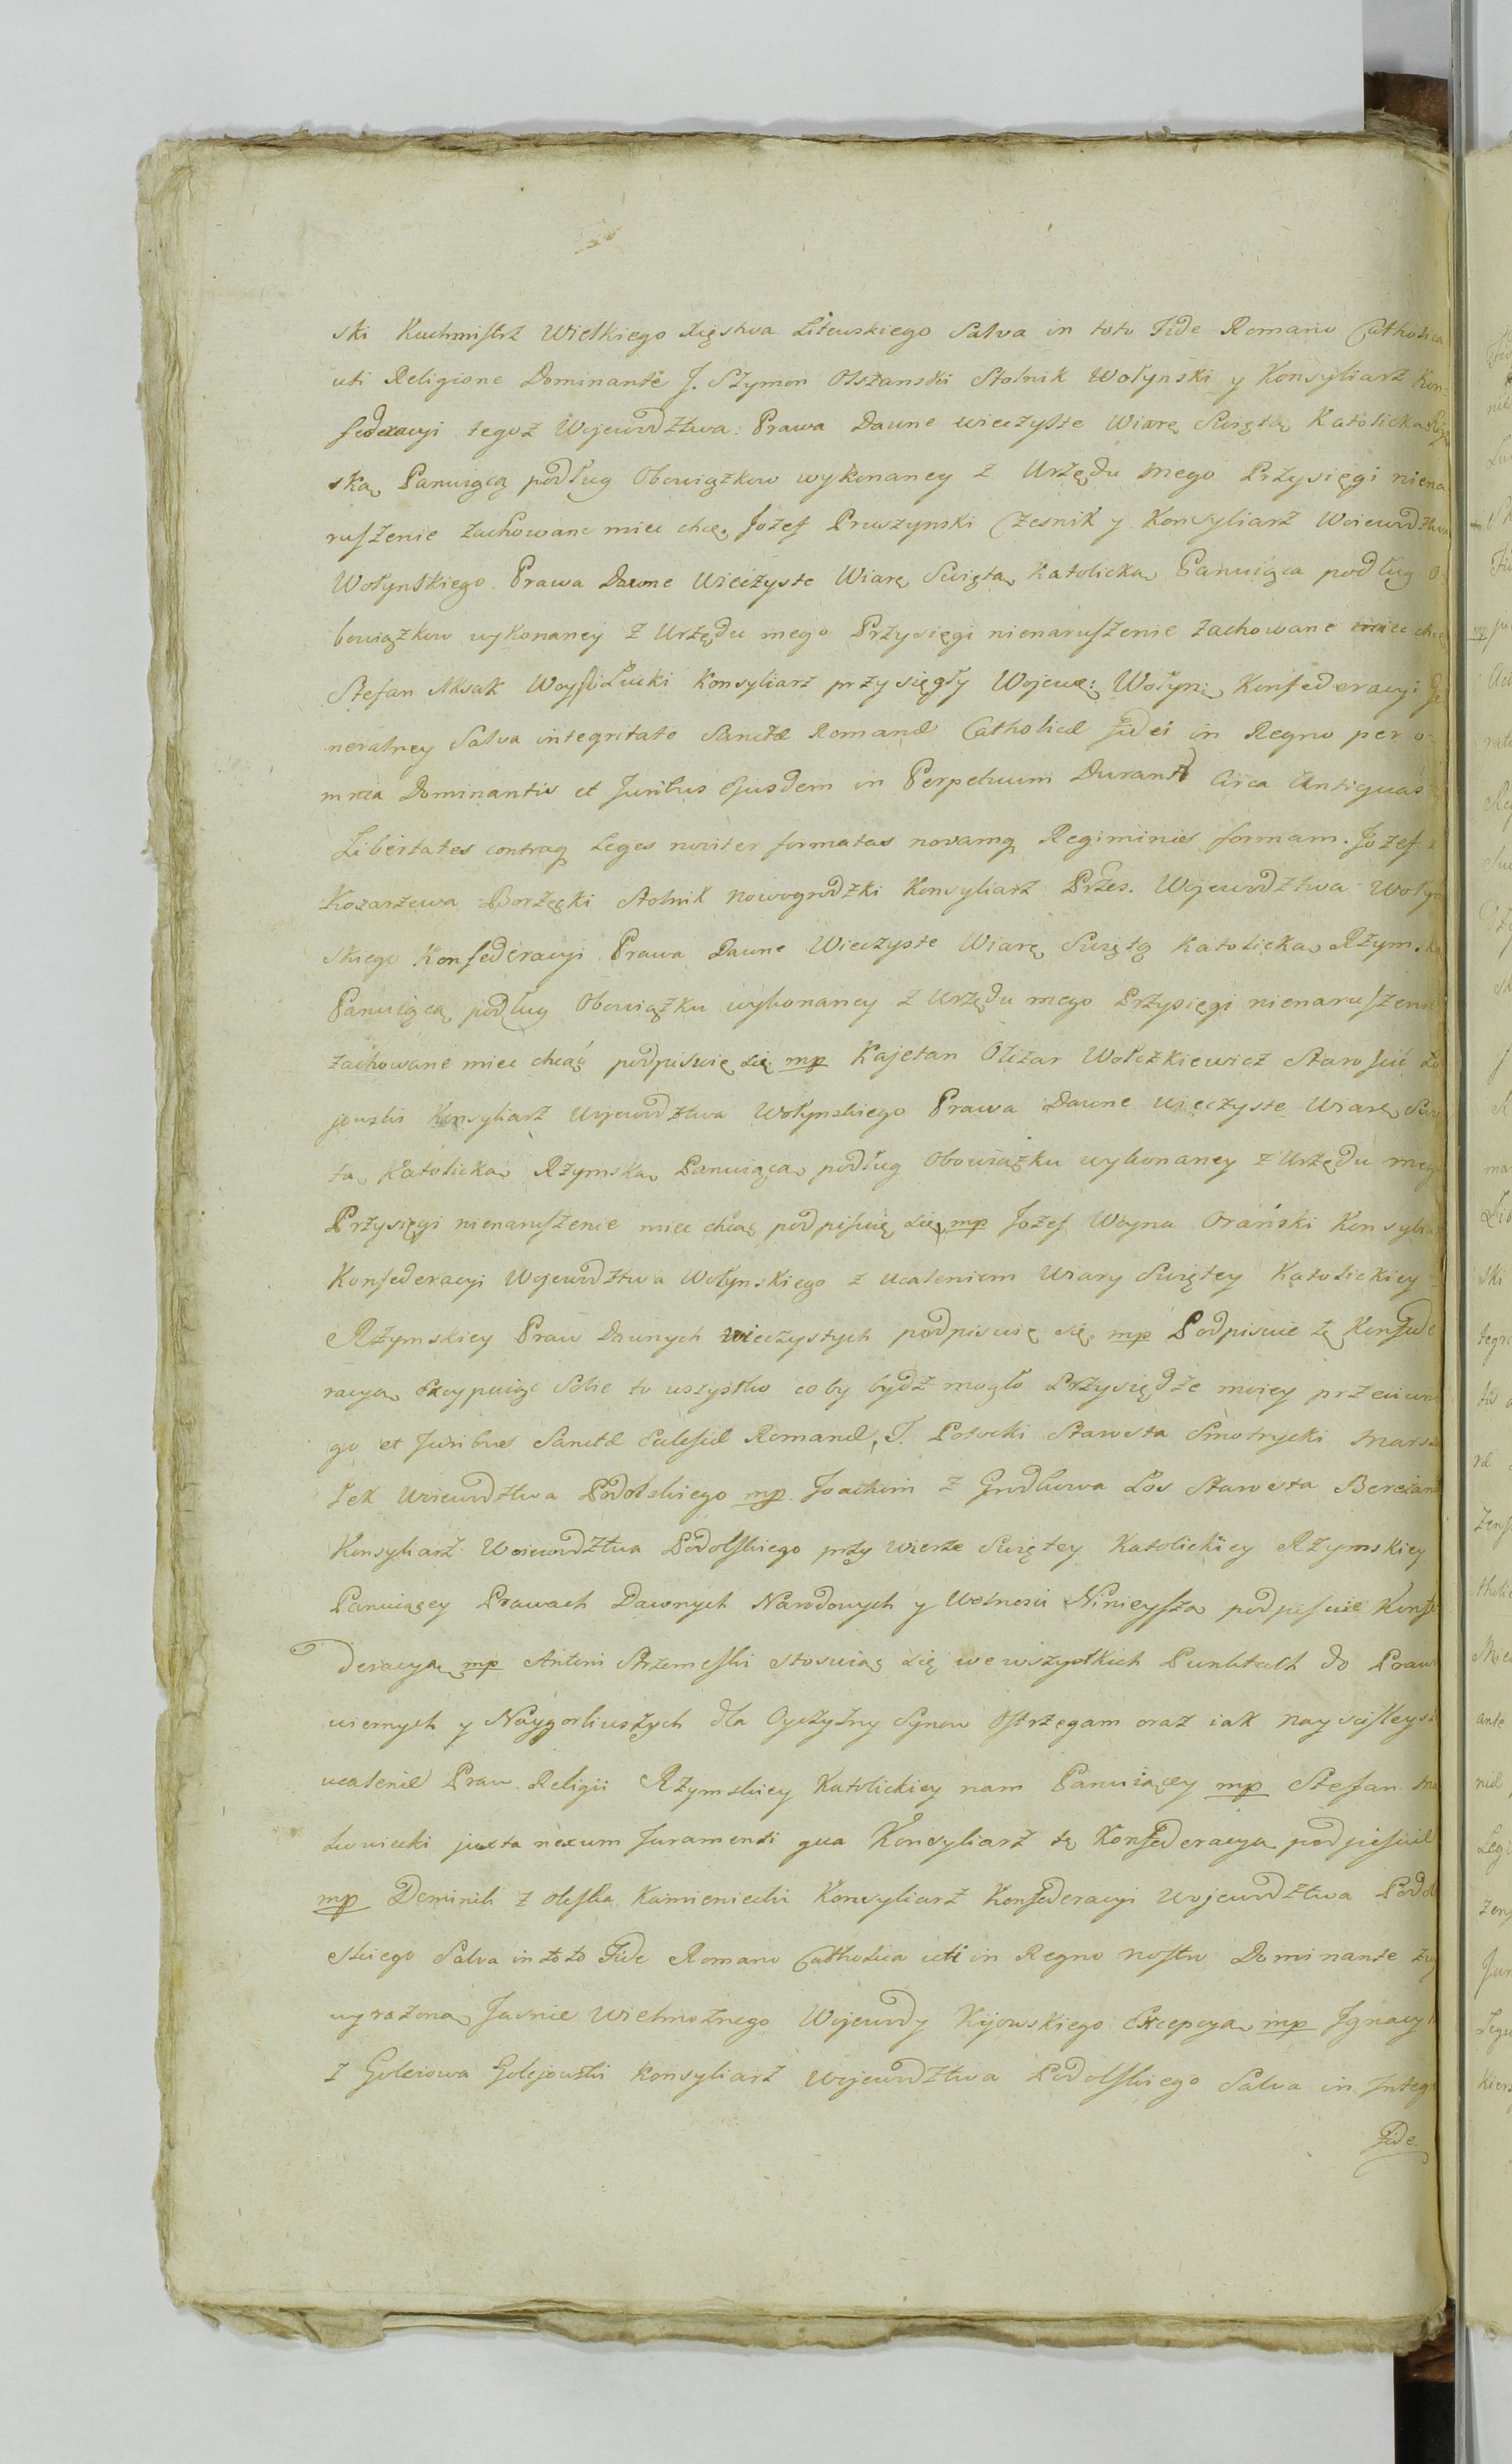 ski Kuchmistrz Wielkiego Xięstwa Litewskiego Salva in toto Fide Romano Catholica
uti Religione Dominante J. Szymon Olszanski Stolnik Wołynski y Konsyliarz Kon:
federacyi tegoż Wojewodztwa Prawa Dawne wieczyste Wiarę Swiętą Katolicką
ską Panuiącą podług Obowiązkow wykonaney z Urzędu mego Przysięgi niena
ruszenie zachowane miec chcę. Jozef Pruszynski Czesnik y Konsyliarz Woiewodztwa
Wołynskiego Prawa Dawne Wieczyste Wiarę Swiętą Katolicką Panuiąca podług O:
bowiązkow wykonaney z Urzędu mego Przysięgi nienaruszenie zachowane miec chcę
Stefan Aksak Woyski Łucki Konsyliarz przysięgły Wojew: Wołyn: Konfederacyi Ge
neralney Salva integritate Sanctæ Romanæ Catholicæ fidei in Regno per o:
mnia Dominantis et Juribus Ejusdem in Perpetuum Durant circa Antiquas
Libertates contraq Leges noviter formatas novamq Regiminis formam. Jozef z
Kozarzewa Borzęcki Stolnik Nowogrodzki Konsyliarz Przes. Wojewodztwa Wołyn
skiego Konfederacyi Prawa Dawne Wieczyste Wiarę Swiętą Katolicką Rzymską
Panuiącą podług Obowiązku wykonaney z Urzędu mego Przysięgi nienaruszenie
zachowane miec chcąc podpisuię się mp Kajetan Olizar Wołczkiewicz Starościc Ło
jowski Konsyliarz Wojewodztwa Wołynskiego Prawa Dawne wieczyste Wiarę Swię
tą Katolicką Rzymską Panuiącą podług Obowiązku wykonaney z Urzędu mego
Przysięgi nienaruszenie miec chcąc podpisuię się mp Jozef Woyna Orański Konsyliarz
Konfederacyi Wojewodztwa Wołynskiego z ucaleniem Wiary Swiętey Katolickiey
Rzymskiey Praw Dawnych wieczystych podpisuię się mp Podpisuie tę Konfede
racyą Excypuiąc Sobie to wszystko co by bydź mogło Przysiędze moiey przeciwne
go et Juribus Sanctæ Eclesiæ Romanæ, J. Potocki Starosta Smotrycki Marsza
łek Woiewodztwa Podolskiego mp Joachim z Grodkowa Łos Starosta
Konsyliarz Woiewodztwa Podolskiego przy wierze Swiętey Katolickiey Rzymskiey
Panuiącey Prawach Dawnych Narodowych y Wolnosci Ninieyszą podpisuie Konfe
deracyą mp Antoni Strzemeski stosuiąc się we wszystkich Punktach do Praw
wiernych y Naygorliwszych dla Oyczyzny Synow Ostrzegam oraz iak nayscisleysz
ucalenie Praw Religii Rzymskiey Katolickiey nam Panuiącey mp Stefan Ma
kowiecki juxta nexum Juramenti qua Konsyliarz tę Konfederacyą podpisuie
mp Dominik z Oleska Kamieniecki Konsyliarz Konfederacyi Wojewodztwa Podol
skiego Salva in toto Fide Romano Catholica uti in Regno nostro Dominante
wyrażoną Jasnie Wielmożnego Wojewody Kijowskiego Excepcyą mp Ignacy
z Golejowa Golejowski Konsyliarz Wojewodztwa Podolskiego Salva in Integr
Fide